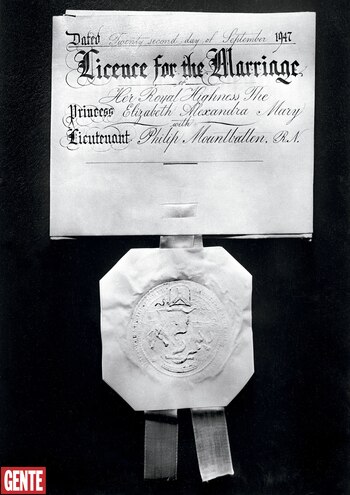 Dated Twenty second day of September 1947
Licence for the Marriage
of
Her Royal Highness The
Princess Elizabeth Alexandra Mary
with
Lieutenant Philip Mountbatten, R.N.
GENTE